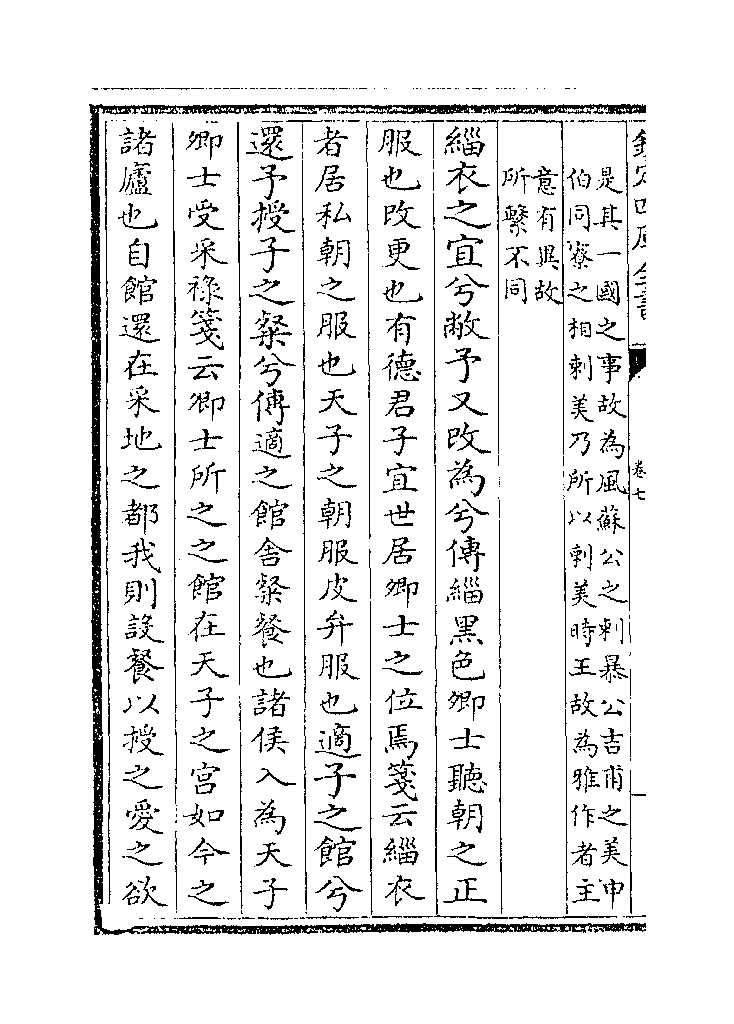 欽定四庫全書
卷七
是其一國之事故為風蘇公之刺暴公吉甫之美申
伯同寮之相刺美乃所以刺美時王故為雅作者主
意有異故
所繫不同
緇衣之宜兮敝予又改為兮傳緇黑色卿士聽朝之正
服也改更也有德君子宜世居卿士之位焉箋云緇衣
者居私朝之服也天子之朝服皮弁服也適子之館兮
還予授子之粲兮傳適之館舍粲餐也諸侯入為天子
卿士受采祿箋云卿士所之之館在天子之宮如今之
諸廬也自館還在采地之都我則設餐以授之愛之欲